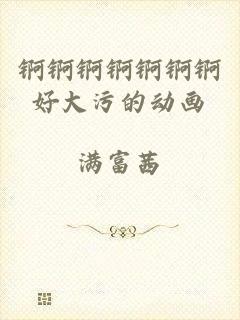 锕锕锕锕锕锕锕
好大污的动画
满富茜